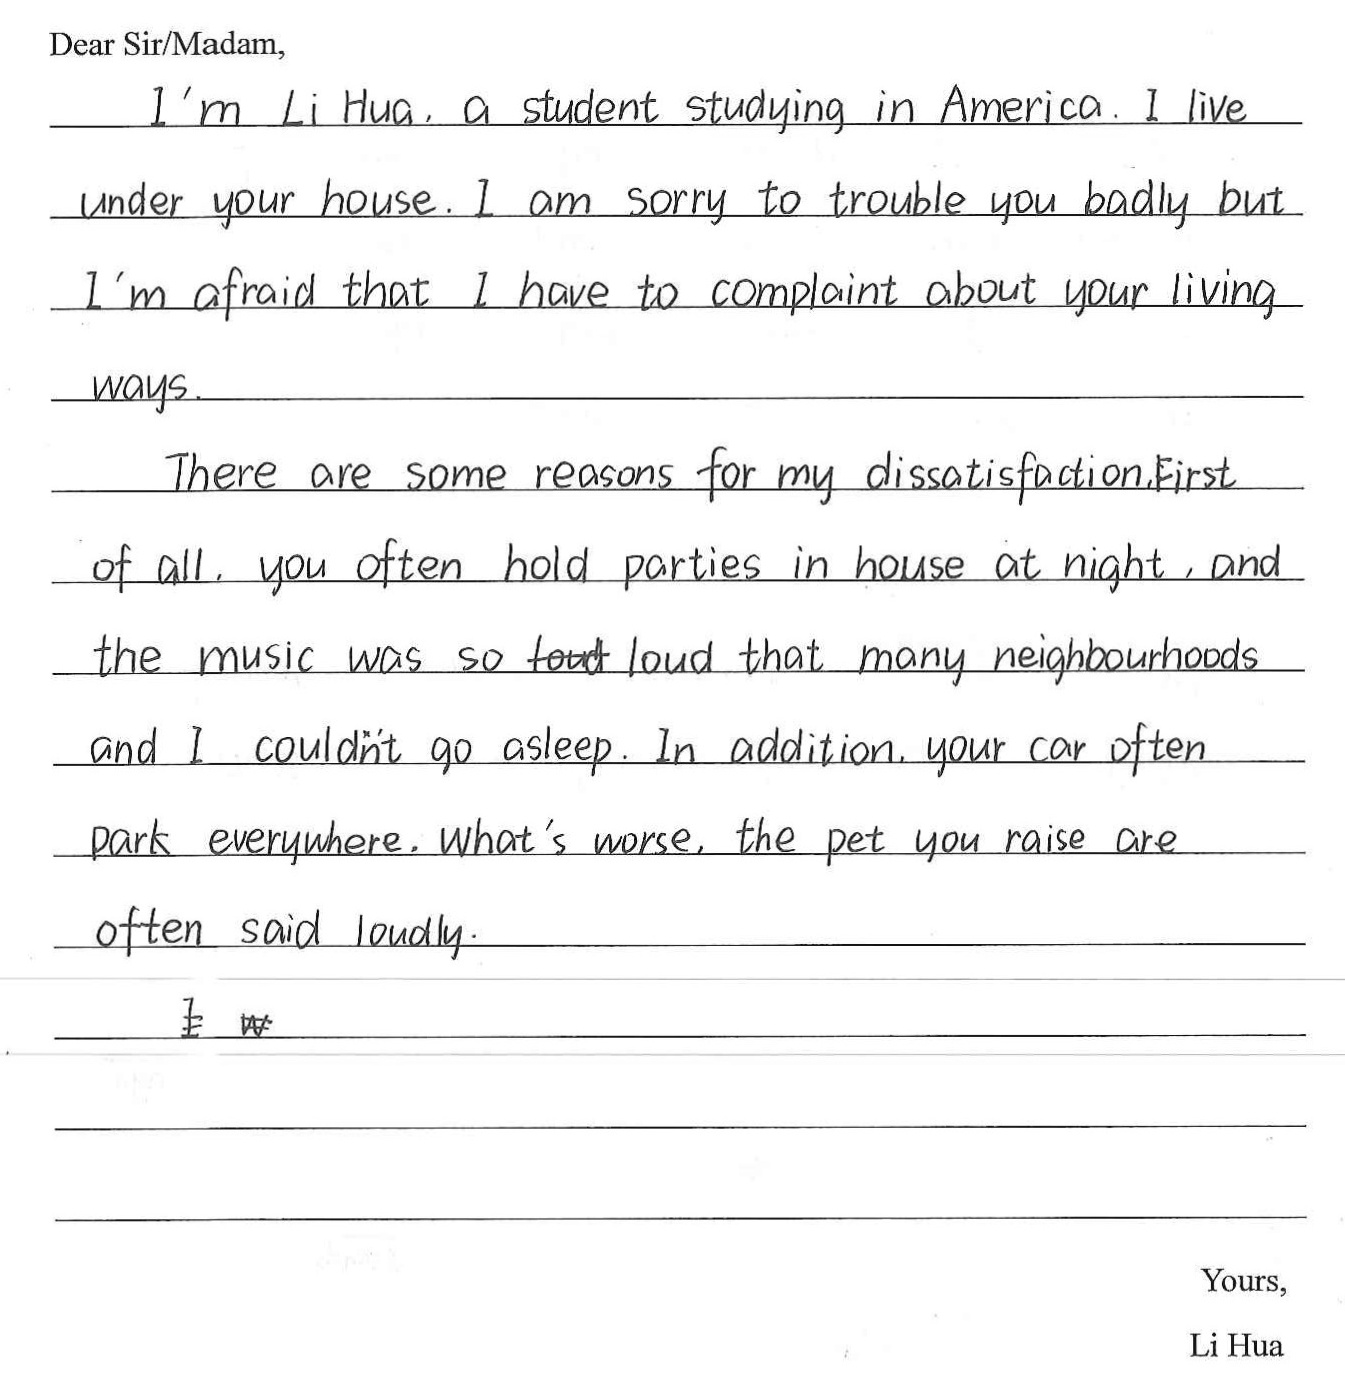 Dear Sir/Madam,
I'm Li Hua, a student studying in America. I live
under your house. I am sorry to trouble you badly but
I'm afraid that I have to complaint about your living
ways.
There are some reasons for my dissatisfaction. First
of all, you often hold parties in house at night, and
the music was so loud that many neighbourhoods
and I couldn't go asleep. In addition, your car often
park everywhere. What's worse, the pet you raise are
often said loudly.
Yours,
Li Hua